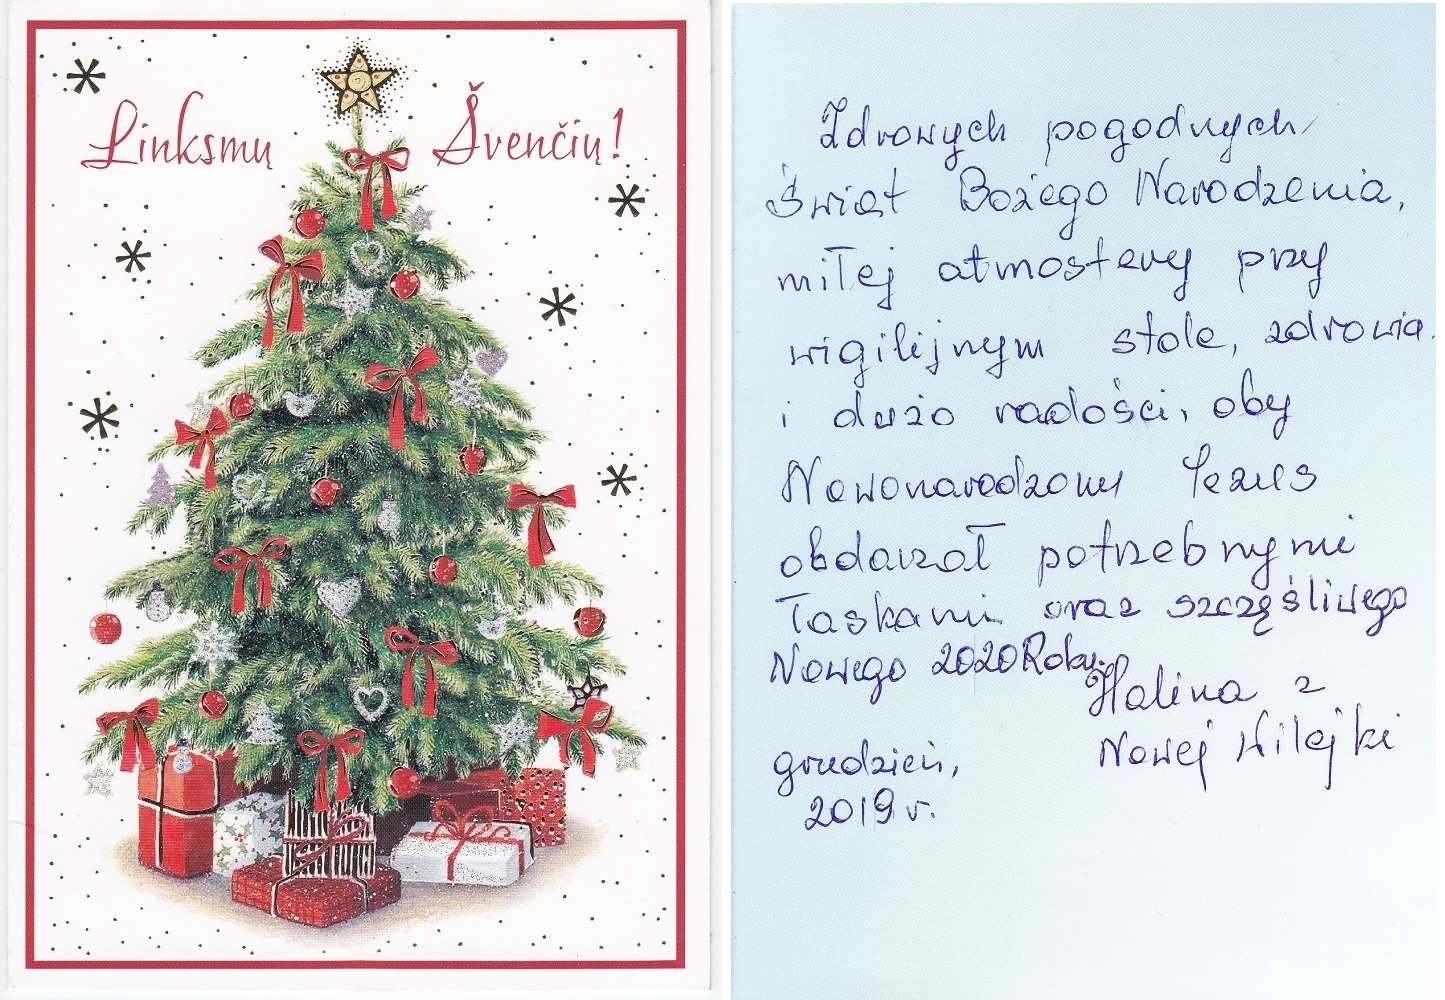 Linksmų Švenčių!
Zdrowych pogodnych
Świąt Bożego Narodzenia,
miłej atmosfery przy
wigilijnym stole, zdrowia
i dużo radości, oby
Nowonarodzony Jezus
obdarzał potrzebnymi
łaskami oraz szczęśliwego
Nowego 2020 Roku.
Halina z
Nowej Wilejki
grudzień,
2019 r.